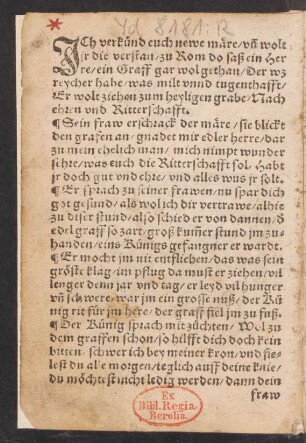 Yd 8181:R
ICh verkünd euch newe märe/vñ wolt
jr die verstan/zu Rom do saß ein Her
re/ein Graff gar wol gethan/Der wz
reycher habe/was milt vnnd tugenthafft/
Er wolt ziehen zum heyligen grabe/Nach
ehren vnd Ritterschafft.
¶ Sein fraw erschrack der märe/sie blickt
den grafen an/gnadet mir edler herre/dar
zu mein ehelich man/mich nimpt wunder
sehre/was euch die Ritterschafft sol/Habt
jr doch gut vnd ehre/vnd alles wus jr solt.
¶ Er sprach zu seiner frawen/nu spar dich
got gesund/als wol ich dir vertrawe/alhie
zu diser stund/also schied er von dannen/d
edel graff so zart/groß kumer stund jm zu
handen/eins Künigs gefangner er wardt.
¶ Er mocht jm nit entfliehen/das was sein
gröste klag/im pflug da must er ziehen/vil
lenger denn jar vnd tag/er leyd vil hunger
vñ schwere/war jm ein grosse buß/der Kü
nig rit für jm here/der graff fiel jm zu fuß.
¶ Der Künig sprach mit züchten/Wol zu
dem graffen schon/so hilfft dich doch kein
bitten/schwer ich bey meiner kron/vnd fie
lest du alle morgen/teglich auff deine knie/
du möchtest nicht ledig werden/dann dein
fraw
Ex
Bibl. Regia
Berolin.